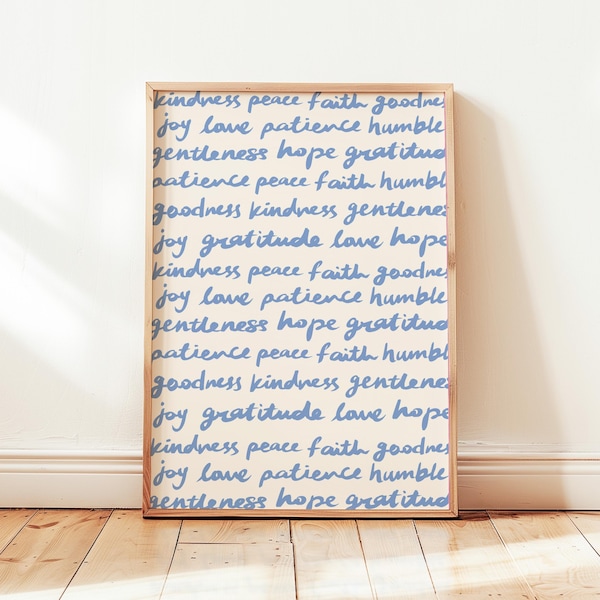 kindness peace faith goodnes
joy love patience humble
gentleness hope gratitud
patience peace faith humbl
goodness kindness gentlenes
joy gratitude love hope
kindness peace faith goodnes
joy love patience humble
gentleness hope gratitud
patience peace faith humbl
goodness kindness gentlenes
joy gratitude love hope
kindness peace faith goodnes
joy love patience humble
gentleness hope gratitud